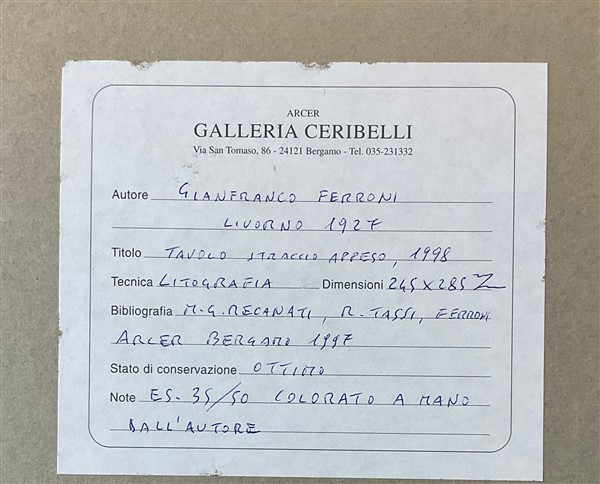 ARCER
GALLERIA CERIBELLI
Via San Tomaso, 86 - 24121 Bergamo - Tel. 035-231332
Autore GIANFRANCO FERRONI
LIVORNO 1927
Titolo TAVOLO STRACCIO APPESO, 1998
Tecnica LITOGRAFIA Dimensioni 245x285
Bibliografia M.G. RECANATI, R. TASSI, FERRONI
ARCER BERGAMO 1997
Stato di conservazione OTTIMO
Note ES. 35/50 COLORATO A MANO
DALL'AUTORE